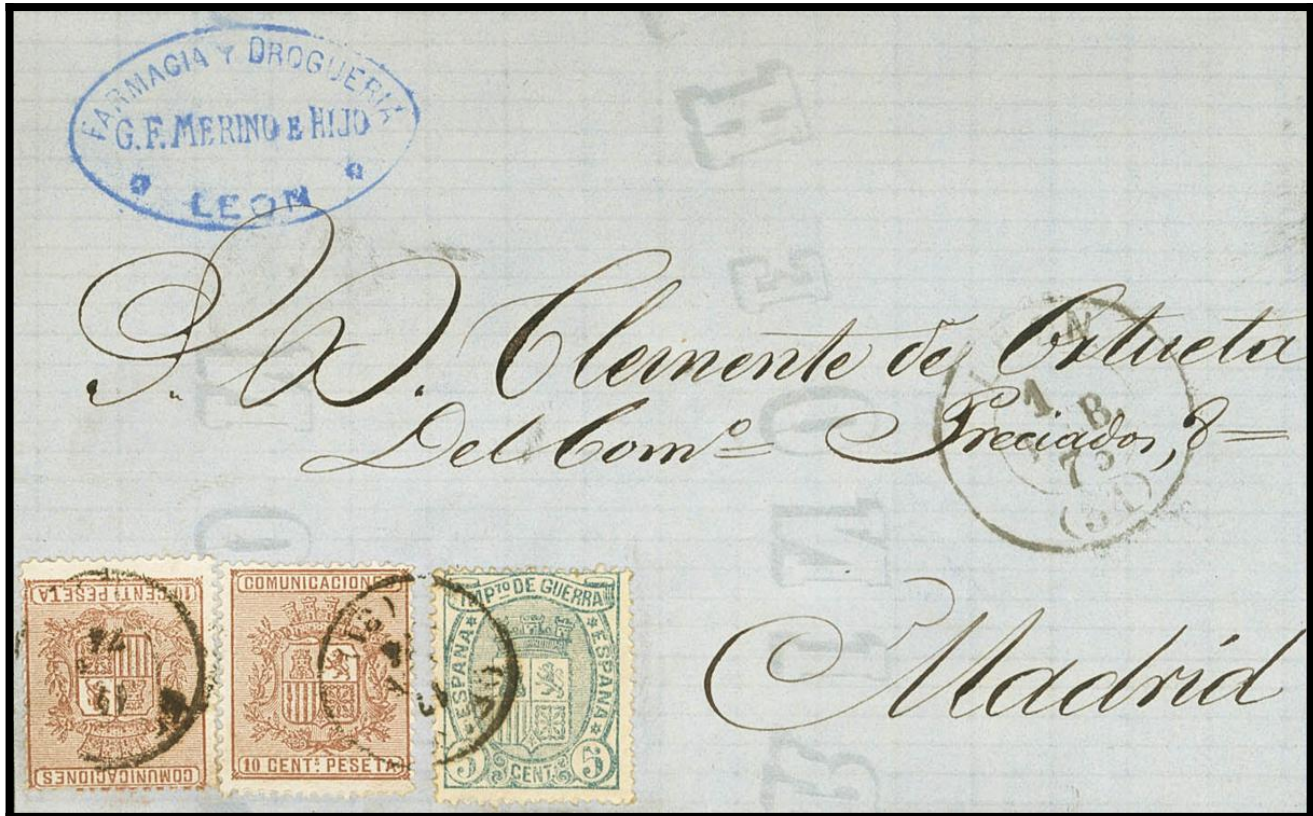 FARMACIA Y DROGUERIA
G.F. MERINO E HIJO
LEON
S. D. Clemente de Ortueta
Del Comº Preciados, 8
Madrid
LEON
1
B
75
(51)
10 CENT. PESETA
COMUNICACIONES
COMUNICACIONES
10 CENT. PESETA
IMPTO DE GUERRA
ESPAÑA
ESPAÑA
5 CENT. 5